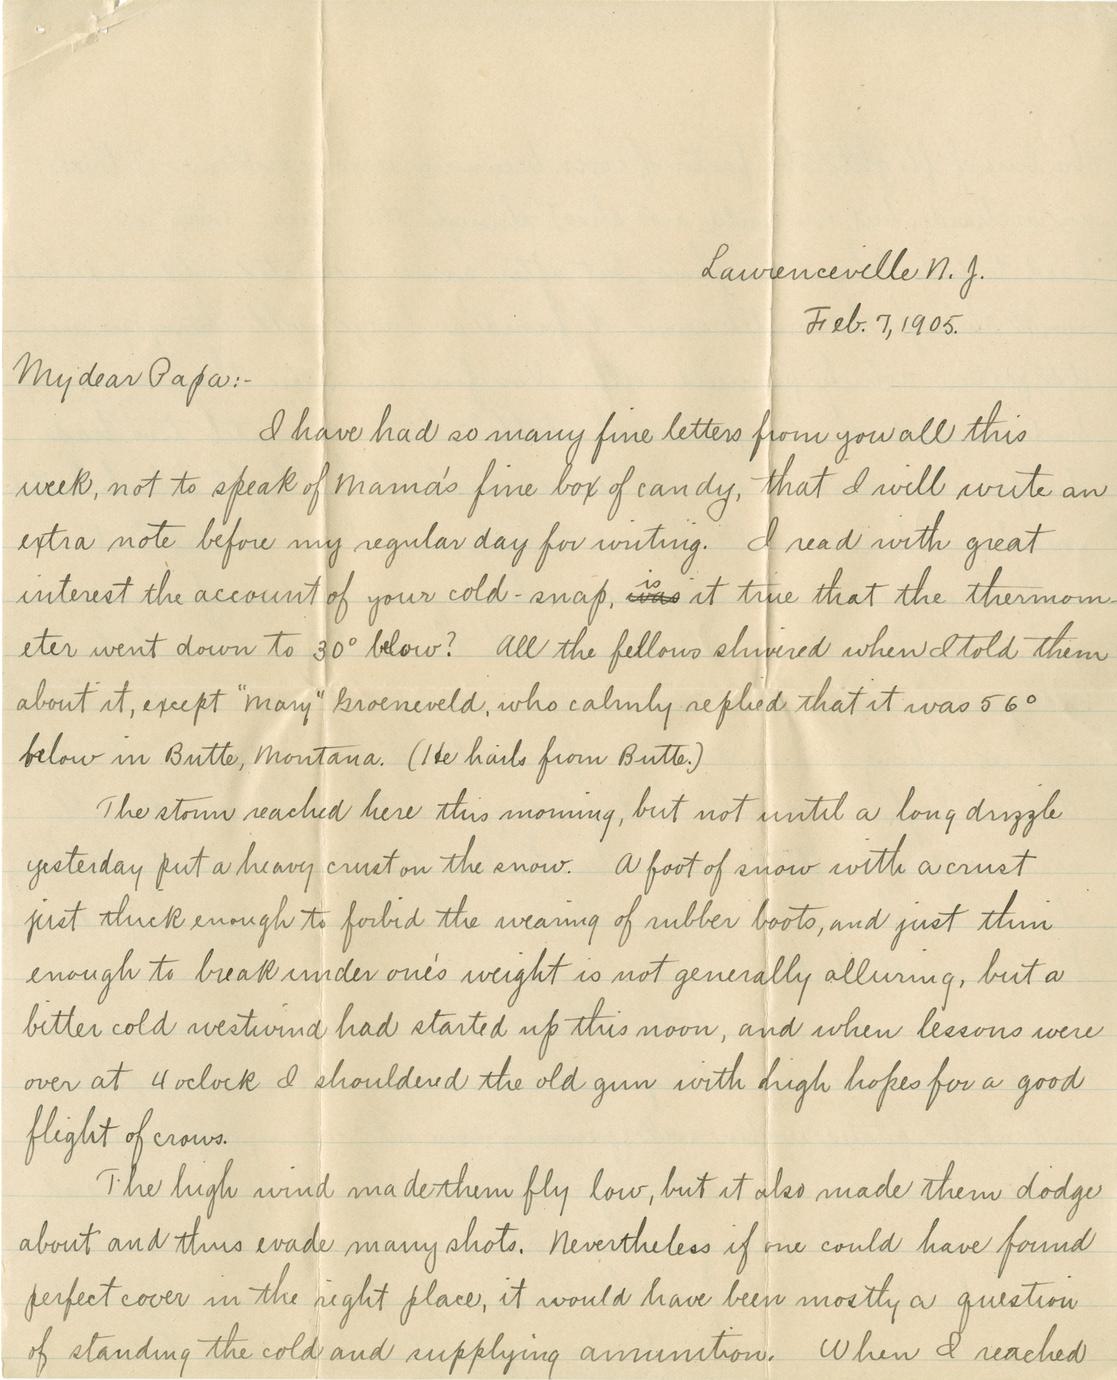 Lawrenceville N. J.
Feb. 7, 1905.
My dear Papa:-
I have had so many fine letters from you all this
week, not to speak of Mama's fine box of candy, that I will write an
extra note before my regular day for writing. I read with great
interest the account of your cold-snap, was is it true that the thermom-
eter went down to 30° below? All the fellows shivered when I told them
about it, except "Mary" Groeneveld, who calmly replied that it was 56°
below in Butte, Montana. (He hails from Butte.)
The storm reached here this morning, but not until a long drizzle
yesterday put a heavy crust on the snow. A foot of snow with a crust
just thick enough to forbid the wearing of rubber boots, and just thin
enough to break under one's weight is not generally alluring, but a
bitter cold westwind had started up this noon, and when lessons were
over at 4 oclock I shouldered the old gun with high hopes for a good
flight of crows.
The high wind made them fly low, but it also made them dodge
about and thus evade many shots. Nevertheless if one could have found
perfect cover in the right place, it would have been mostly a question
of standing the cold and supplying ammunition. When I reached